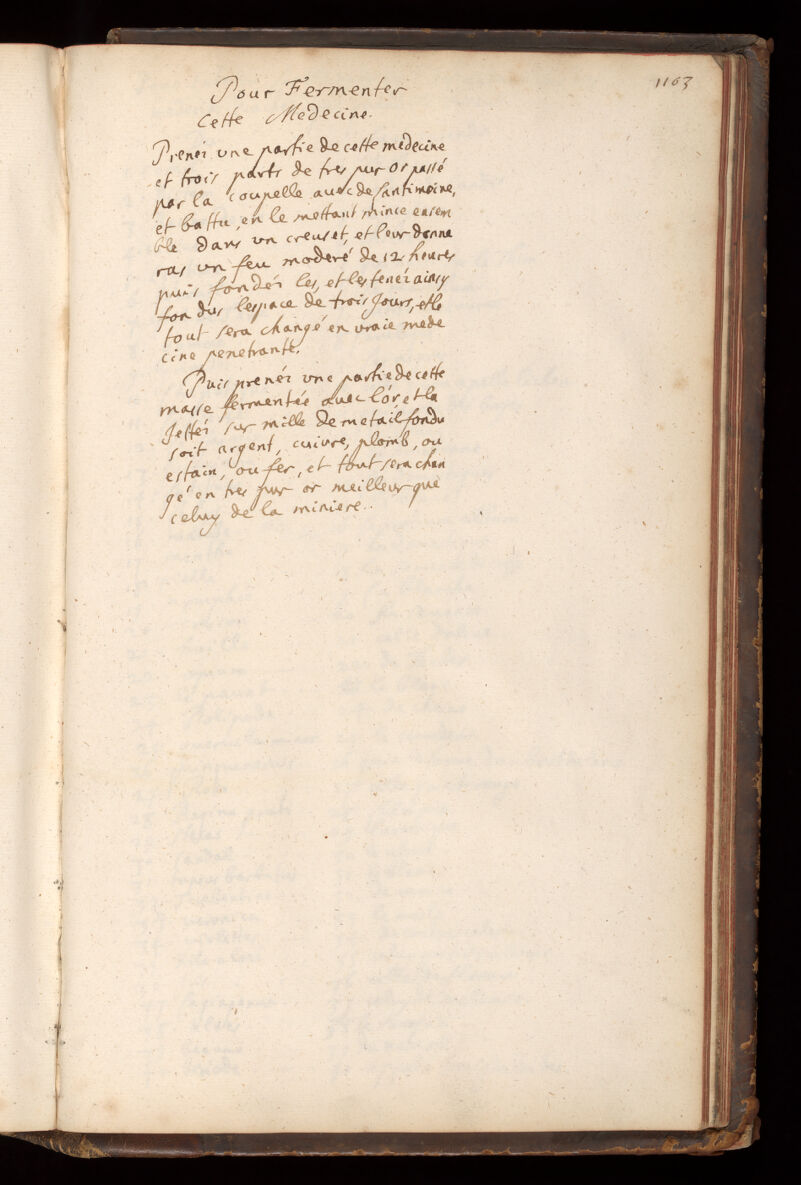 1163
Pour Fermenter
Cette Medecine.
Prenéz une partie de cette medecine
et trois parts de tres pur or passé
par la coupelle avec de l'antimoine,
et battu, en le mettant mince ensem
ble dans un creuset, et leur donne
ras un feu moderé de 12 heures
puis fondéz les, et les tenéz ainsy
fondus l'espace de trois Jours, et le
tout sera changé en vraie mede
cine penetrante.
Puis prenéz une partie de cette
masse fermentée avec l'or et la
Jettéz sur mille de metail fondu
soit argent, cuivre, plomb, ou
estain, ou fer, et tout sera chan
gé en tres pur or meilleur que
celuy de la miniere..